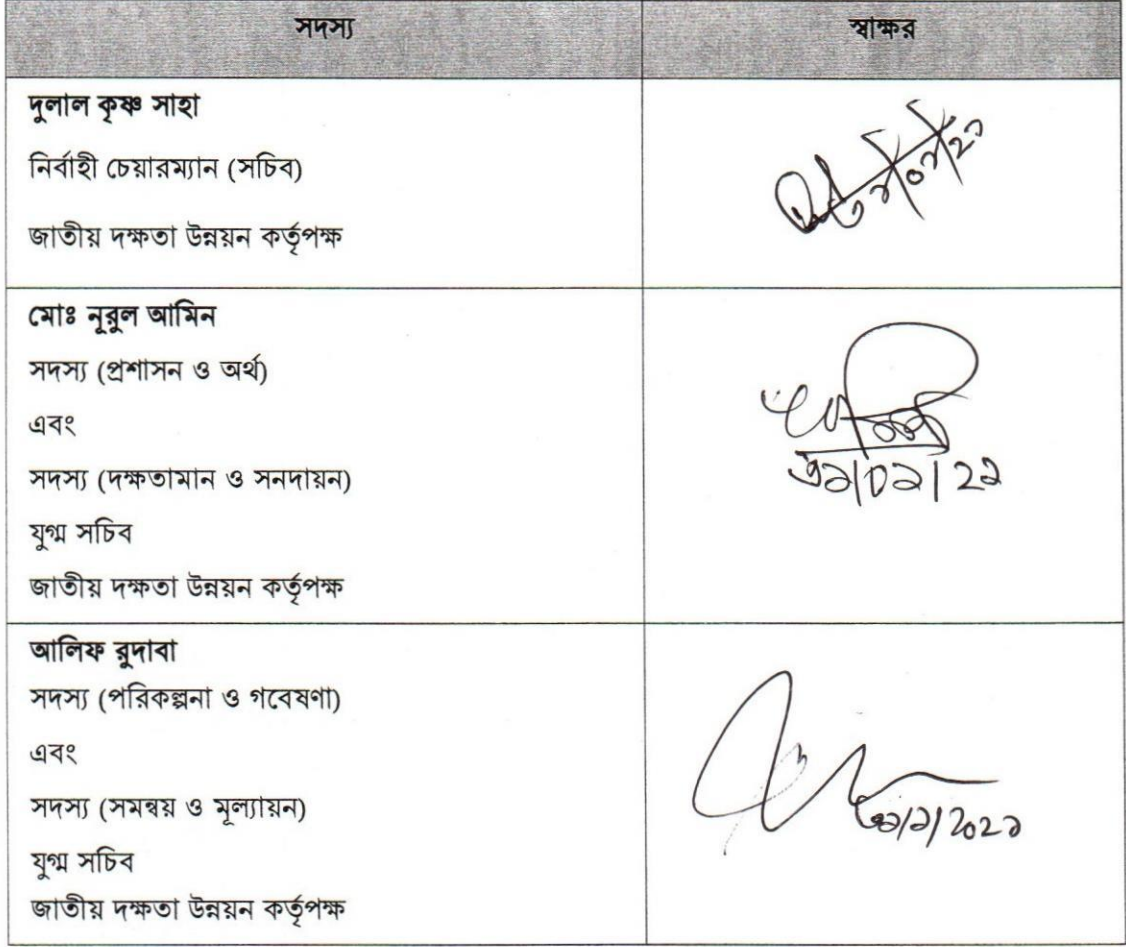 সদস্য
স্বাক্ষর
দুলাল কৃষ্ণ সাহা
নির্বাহী চেয়ারম্যান (সচিব)
জাতীয় দক্ষতা উন্নয়ন কর্তৃপক্ষ
মোঃ নূরুল আমিন
সদস্য (প্রশাসন ও অর্থ)
এবং
সদস্য (দক্ষতামান ও সনদায়ন)
যুগ্ম সচিব
জাতীয় দক্ষতা উন্নয়ন কর্তৃপক্ষ
আলিফ রুদাবা
সদস্য (পরিকল্পনা ও গবেষণা)
এবং
সদস্য (সমন্বয় ও মূল্যায়ন)
যুগ্ম সচিব
জাতীয় দক্ষতা উন্নয়ন কর্তৃপক্ষ